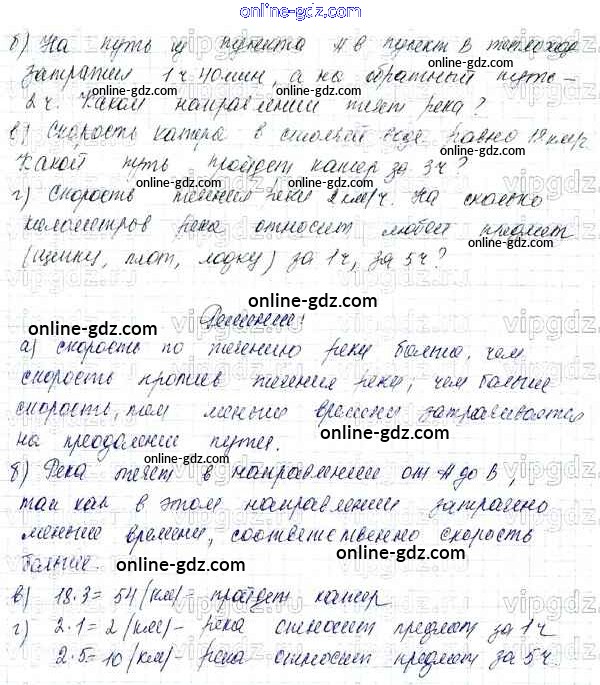 online-gdz.com
б) На путь из пункта А в пункт В теплоход
затратил 1 ч 40 мин, а на обратный путь –
online-gdz.com
2 ч. Каком направлении течёт река?
online-gdz.com
в) Скорость катера в стоячей воде равно 18 км/ч.
Какой путь пройдет катер за 3 ч?
online-gdz.com
online-gdz.com
г) Скорость течения реки 2 км/ч. На сколько
online-gdz.com
километров река относит любой предмет
online-gdz.com
(щепку, плот, лодку) за 1 ч, за 5 ч?
online-gdz.com
Решение:
online-gdz.com
а) скорость по течению реки больше, чем
скорость против течения реки, чем больше
скорость, тем меньше времени затрачивается
на преодоление пути.
online-gdz.com
б) Река течет в направлении от А до В,
online-gdz.com
так как в этом направлении затрачено
меньше времени, соответственно скорость
больше.
online-gdz.com
online-gdz.com
в) 18·3 = 54 (км) – пройдет катер
г) 2·1 = 2 (км) – река относит предмет за 1 ч
online-gdz.com
2·5 = 10 (км) – река относит предмет за 5 ч.
online-gdz.com